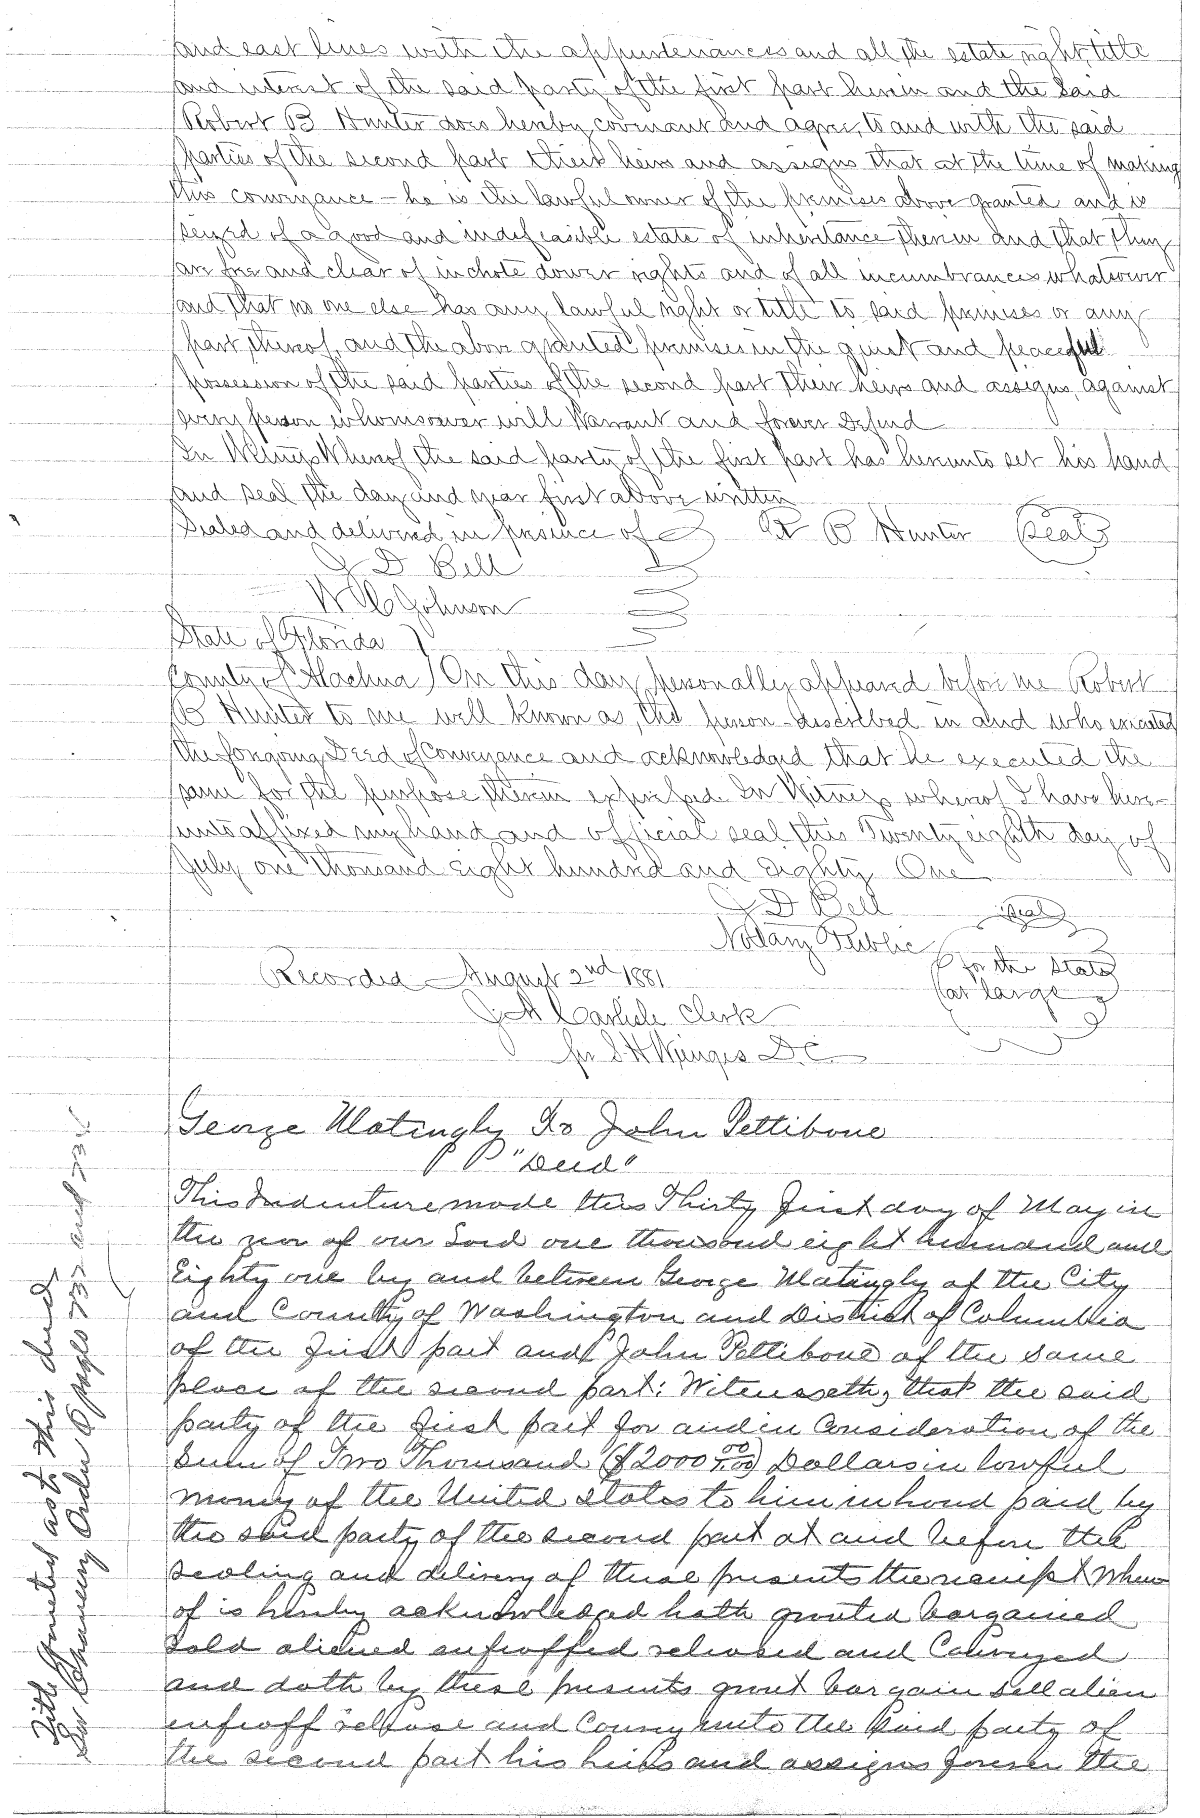 and east lines with the appurtenances and all the estate right title
and interest of the said party of the first part herein and the said
Robert B Hunter does hereby covenant and agree, to and with the said
parties of the second part their heirs and assigns that at the time of making
this conveyance – he is the lawful owner of the premises above granted and is
seized of a good and indefeasible estate of inheritance therein and that they
are free and clear of inchote dower rights and of all incumbrances whatsoever
and that no one else has any lawful right or title to said premises or any
part thereof, and the above granted premises in the quiet and peaceful
possession of the said parties of the second part their heirs and assigns, against
every person whomsoever will Warrant and forever Defend
In Witness Whereof the said party of the first part has hereunto set his hand
and seal the day and year first above written
Sealed and delivered in presence of R B Hunter (Seal)
J D Bell
W C Johnson
State of Florida )
County of Alachua ) On this day personally appeared before me Robert
B Hunter to me well known as, the person described in and who executed
the forgoing Deed of Conveyance and acknowledged that he executed the
same for the purpose therein expressed. In Witness whereof I have here-
unto affixed my hand and official seal this Twenty eighth day of
July one thousand eight hundred and eighty One
J D Bell (Seal)
Notary Public
for the State
at large
Recorded August 2nd 1881
J A Carlisle Clerk
pr S H Wienges D.C.
George Matingly To John Pettibone
"Deed"
This Indenture made this Thirty first day of May in
the year of our Lord one thousand eight hundred and
Eighty one by and between George Matingly of the City
and County of Washington and District of Columbia
of the first part and John Pettibone of the same
place of the second part: Witnesseth, that the said
party of the first part for and in Consideration of the
Sum of Two Thousand ($2000 00/100) Dollars in lawful
money of the United States to him in hand paid by
the said party of the second part at and before the
sealing and delivery of these presents the receipt where
of is hereby acknowledged hath granted bargained
sold aliened enfeoffed released and Conveyed
and doth by these presents grant bargain sell alien
enfeoff release and Convey unto the said party of
the second part his heirs and assigns forever the
Title quieted as to this deed
See Chancery Order O pages 732 and 734